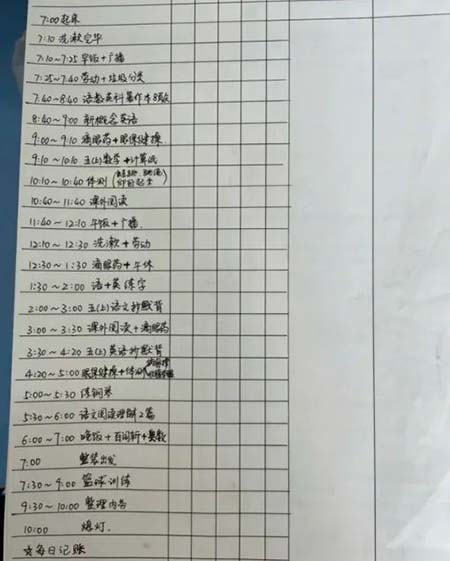 7:00 起床
7:10 洗漱完毕
7:10~7:25 早饭+广播
7:25~7:40 劳动+垃圾分类
7:40~8:40 语数英科暑作本8页
8:40~9:00 新概念英语
9:00~9:10 滴眼药+眼保健操
9:10~10:10 五(上)数学+计算纸
10:10~10:40 体测(跳绳 仰卧起坐
10:40~11:40 课外阅读
11:40~12:10 午饭+广播
12:10~12:30 洗漱+劳动
12:30~1:30 滴眼药+午休
1:30~2:00 语+英练字
2:00~3:00 五(上)语文抄默背
3:00~3:30 课外阅读+滴眼药
3:30~4:20 五(上)英语抄默背
4:20~5:00 眼保健操+体测
5:00~5:30 练钢琴
5:30~6:00 语文阅读理解2篇
6:00~7:00 晚饭+百闻斩+奥数
7:00 整装出发
7:30~9:00 篮球训练
9:30~10:00 整理内务
10:00 熄灯.
☆每日记账